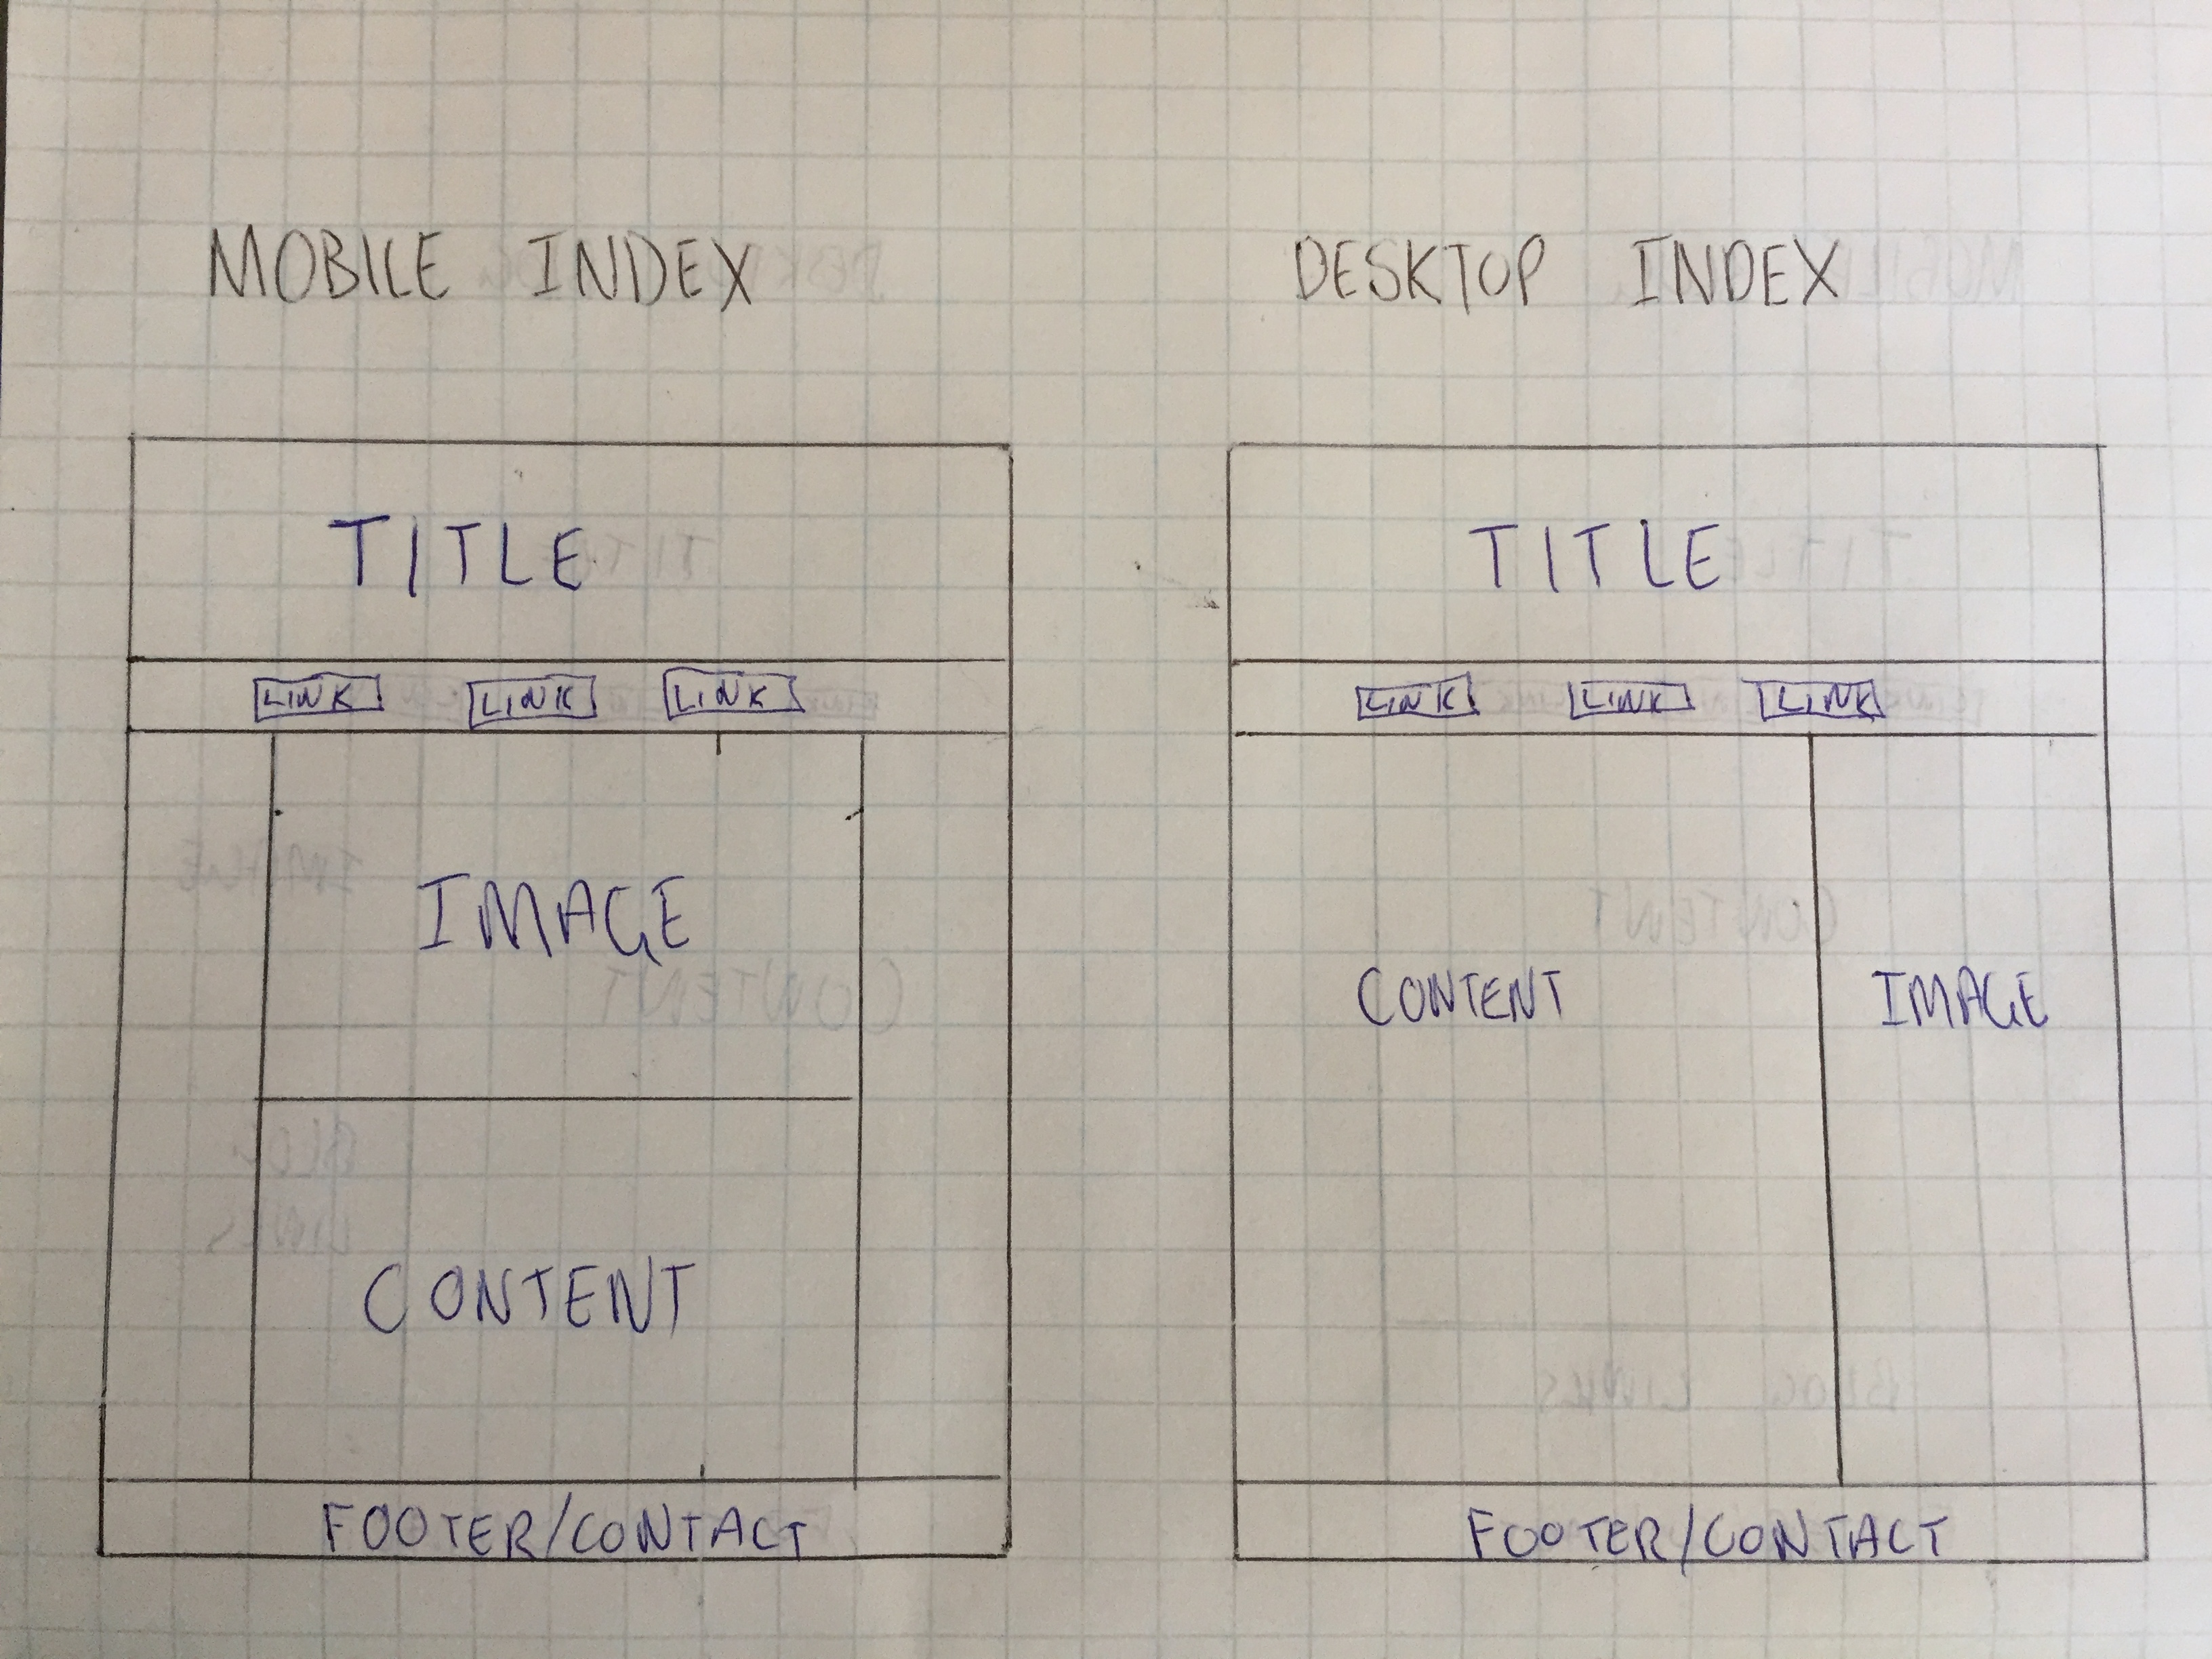 MOBILE INDEX
TITLE
LINK LINK LINK
IMAGE
CONTENT
FOOTER/CONTACT
DESKTOP INDEX
TITLE
LINK LINK LINK
CONTENT IMAGE
FOOTER/CONTACT